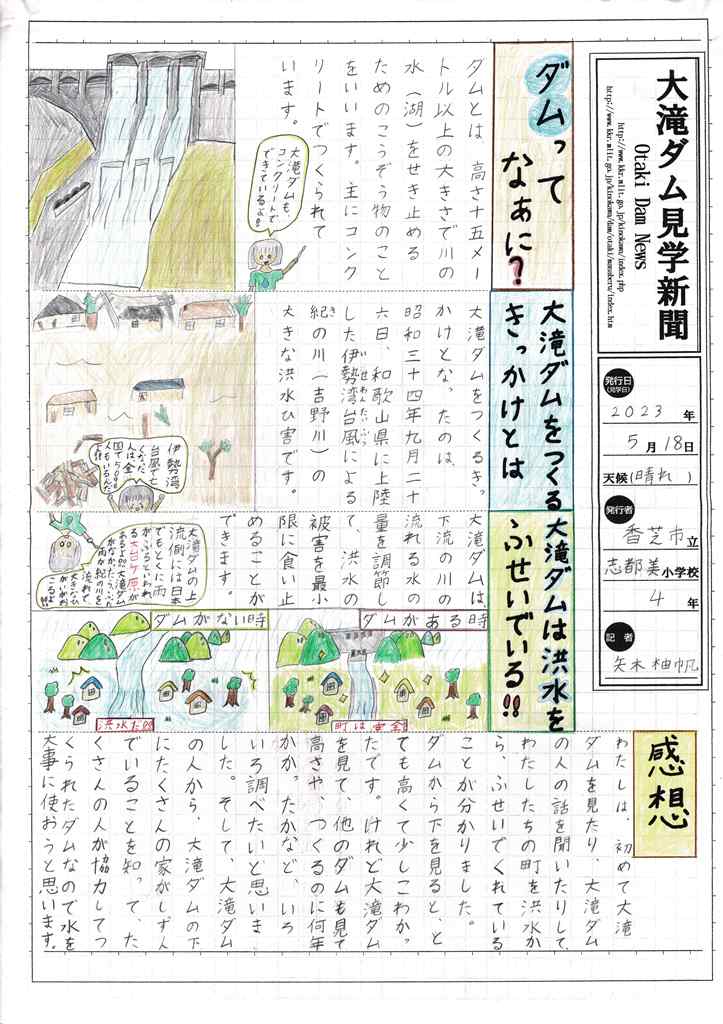 大滝ダム見学新聞
Otaki Dam News
http://www.kkr.mlit.go.jp/kinokawa/index.php
http://www.kkr.mlit.go.jp/kinokawa/dam/otaki/manaberu/index.htm
発行日
(見学日)
2023年
5月18日
天候(晴れ)
発行者
香芝市立
志都美小学校
4年
記者
矢木柚帆
ダムって
なぁに?
ダムとは、高さ十五メー
トル以上の大きさで川の
水(湖)をせき止める
ためのこうぞう物のこと
をいいます。主にコンク
リートでつくられて
います。
大滝ダムも、
コンクリートで
できているよ!!
大滝ダムをつくる
きっかけとは
大滝ダムをつくるきっ
かけとなったのは、
昭和三十四年九月二十
六日、和歌山県に上陸
した伊勢湾台風による
いせわんたいふう
紀の川(吉野川)の
き
大きな洪水ひ害です。
伊勢湾
台風で亡
くなった
人は全
国で5098
人もいるんだ
よ!!
大滝ダムは洪水を
ふせいでいる!!
大滝ダムは、
下流の川の
流れる水の
量を調節し
て、洪水の
被害を最小
限に食い止
めることが
できます。
大滝ダムの上
流側には日本
でもとくに雨
がふるといわれ
る大台ケ原が
あるよ!!
ダムがある時
町は安全
ダムがない時
洪水だ!!
感想
わたしは、初めて大滝
ダムを見たり、大滝ダム
の人の話を聞いたりして、
わたしたちの町を洪水か
ら、ふせいでくれている
ことが分かりました。
ダムから下を見ると、と
ても高くて少しこわかっ
たです。けれど大滝ダム
を見て、他のダムも見て
高さや、つくるのに何年
かかったかなど、いろ
いろ調べたいと思いま
した。そして、大滝ダム
の人から、大滝ダムの下
にたくさんの家がしずん
でいることを知って、た
くさんの人が協力してつ
くられたダムなので水を
大事に使おうと思います。